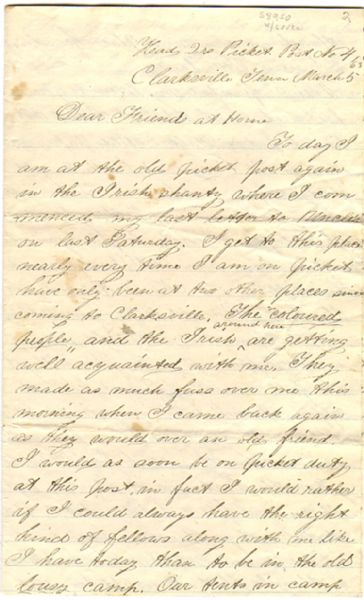 2
Head Qrs Picket Post No 4
Clarksville Tenn March 5
Dear Friends at Home
To day I
am at the old picket post again
in the Irish shanty where I com
menced my last letter to
on last Saturday. I get to this place
nearly every time I am on picket
have only been at two other places since
coming to Clarksville. The coloured
people, and the Irish around here are getting
well acquainted with me. They
made as much fuss over me this
morning when I came back again
as they would over an old friend.
I would as soon be on picket duty,
at this post, in fact I would rather
if I could always have the right
kind of fellows along with me like
I have today than to be in the old
lousy camp. Our tents in camp